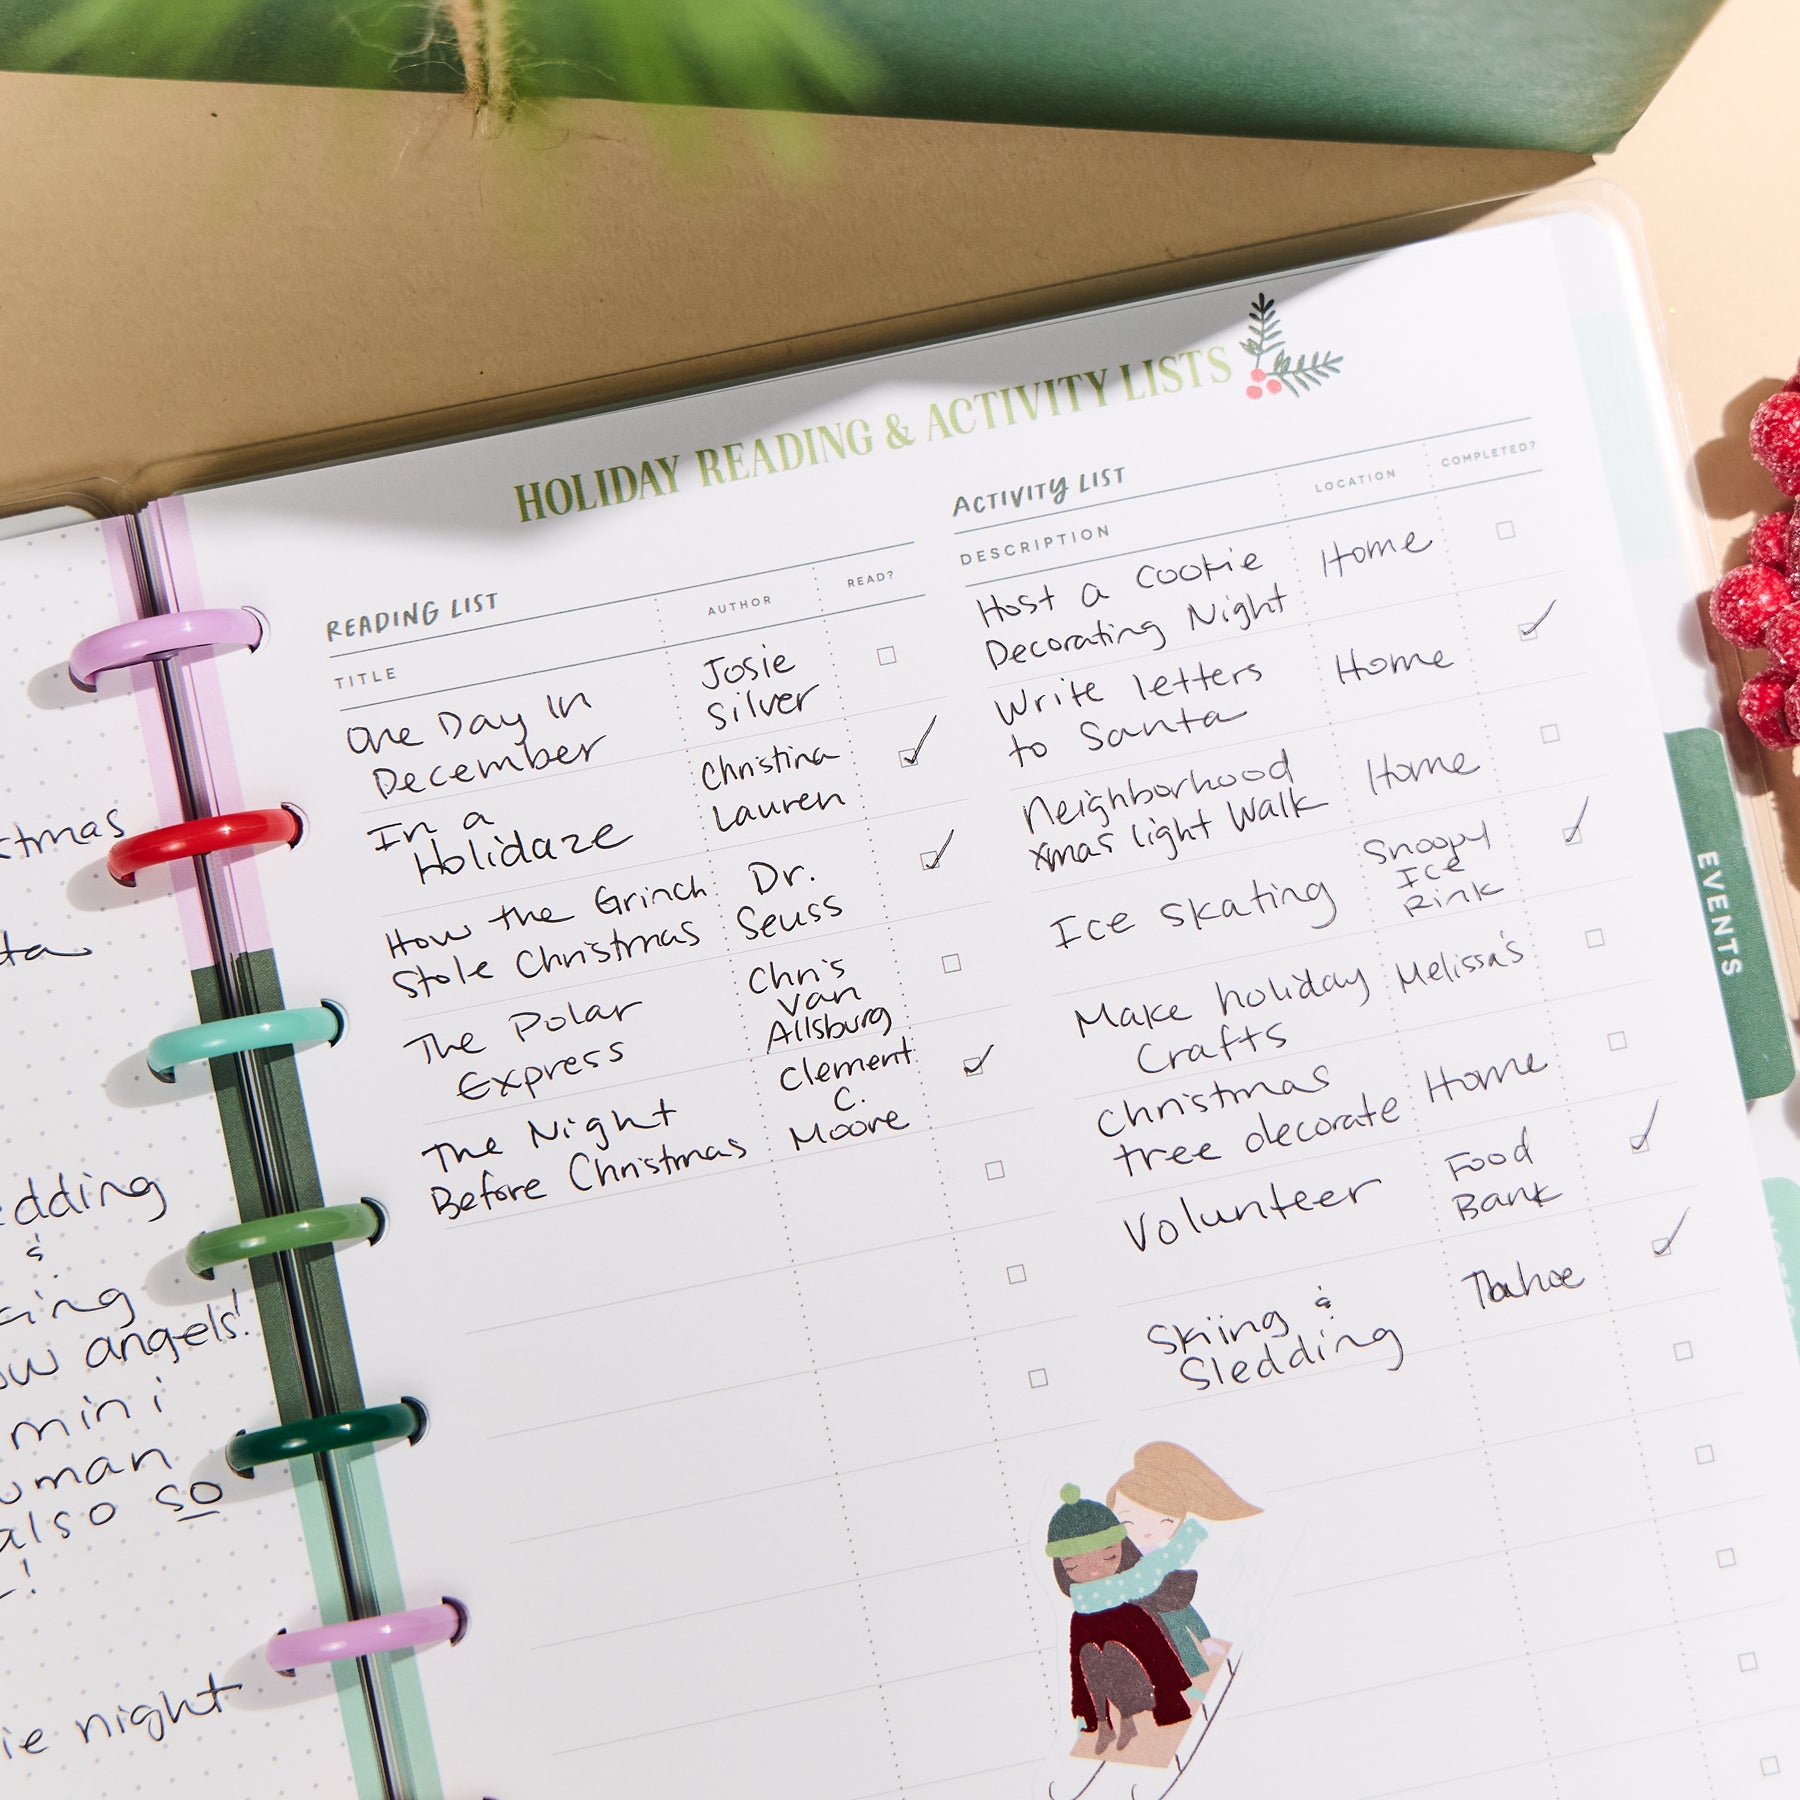 HOLIDAY READING & ACTIVITY LISTS
READING LIST
TITLE
AUTHOR
READ?
One Day In
December
Josie
Silver
In a
Holidaze
Christina
Lauren
How the Grinch
Stole Christmas
Dr.
Seuss
The Polar
Express
Chris
Van
Allsburg
The Night
Before Christmas
Clement
C.
Moore
ACTIVITY LIST
DESCRIPTION
LOCATION
COMPLETED?
Host a Cookie
Decorating Night
Home
Write letters
to Santa
Home
Neighborhood
xmas light Walk
Home
Ice Skating
Snoopy
Ice
Rink
Make holiday
Crafts
Melissa's
Christmas
tree decorate
Home
Volunteer
Food
Bank
Skiing &
Sledding
Tahoe
EVENTS
&
angels!
mini
also so
night